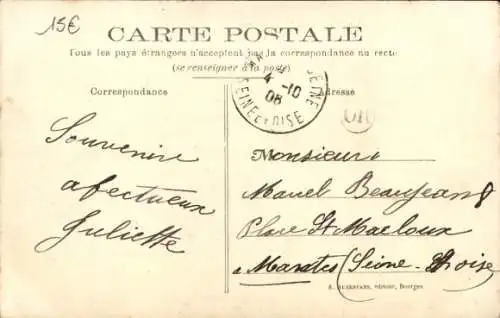 15€
CARTE POSTALE
Tous les pays étrangers n'acceptent pas la correspondance au recto
(se renseigner à la poste)
Correspondance
Adresse
4 -10
08
SEINE ET OISE
Souvenire
afectueux
Juliette
Monsieur
Marcel Beaujean
Place St Macloux
a Mantes (Seine-&-Oise
, éditeur, Bourges